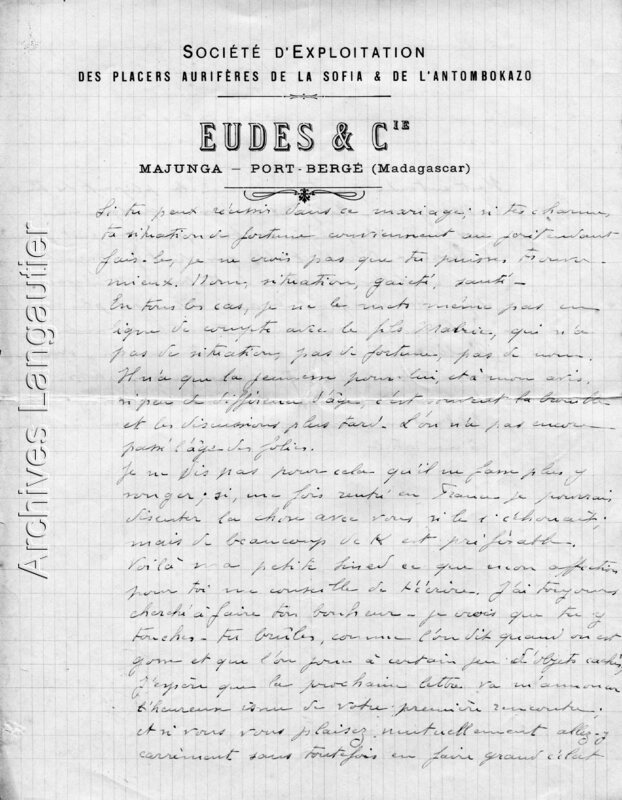 SOCIÉTÉ D'EXPLOITATION
DES PLACERS AURIFÈRES DE LA SOFIA & DE L'ANTOMBOKAZO
EUDES & CIE
MAJUNGA – PORT-BERGÉ (Madagascar)
Si tu peux réussir dans ce mariage; si tes charmes,
ta situation de fortune conviennent au prétendant
fais-le, je ne crois pas que tu puisses trouver
mieux. Nom, situation, gaieté, santé –
En tous les cas, je ne le mets même pas en
ligne de compte avec le fils, qui n'a
pas de situation, pas de fortune, pas de nom.
Il n'a que la jeunesse pour lui, et à mon avis,
si peu de différence d'âge, c'est souvent la brouille
et les discussions plus tard. L'on n'a pas encore
passé l'âge des folies.
Je ne dis pas pour cela qu'il ne faille plus y
songer; si, une fois rentré en France je pourrais
discuter la chose avec vous si le échouait;
mais de beaucoup de X est préférable.
Voilà ma petite ce que mon affection
pour toi me conseille de t'écrire. J'ai toujours
cherché à faire ton bonheur – je crois que tu y
touches – tu brûles, comme l'on dit quand on est
gosse et que l'on joue à certain jeu d'objets cachés
J'espère que la prochaine lettre va m'annoncer
l'heureux issue de votre première rencontre;
et si vous vous plaisez mutuellement allez-y
carrément sans toutefois en faire grand éclat
Archives Langautier